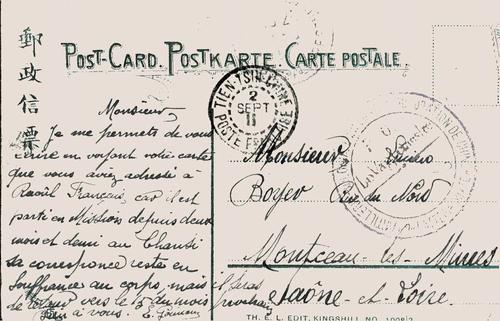 郵政信票
POST-CARD. POSTKARTE. CARTE POSTALE.
TIEN-TSIN-CHINE
2
SEPT
11
POSTE FRANÇAISE
Monsieur
Je me permets de vous
écrire en voyant votre carte
que vous aviez adressée à
Raoûl Français, car il est
parti en Mission depuis deux
mois et demi au Chansi
sa corresponce reste en
souffrance au corps, mais il sera
de retour vers le 15 du mois prochain
à vous. E.
Monsieur
Boyer Rue du Nord
Montceau-les-Mines
Saône-et-Loire.
TH. E. L. EDIT. KINGSHILL NO. 1008/2